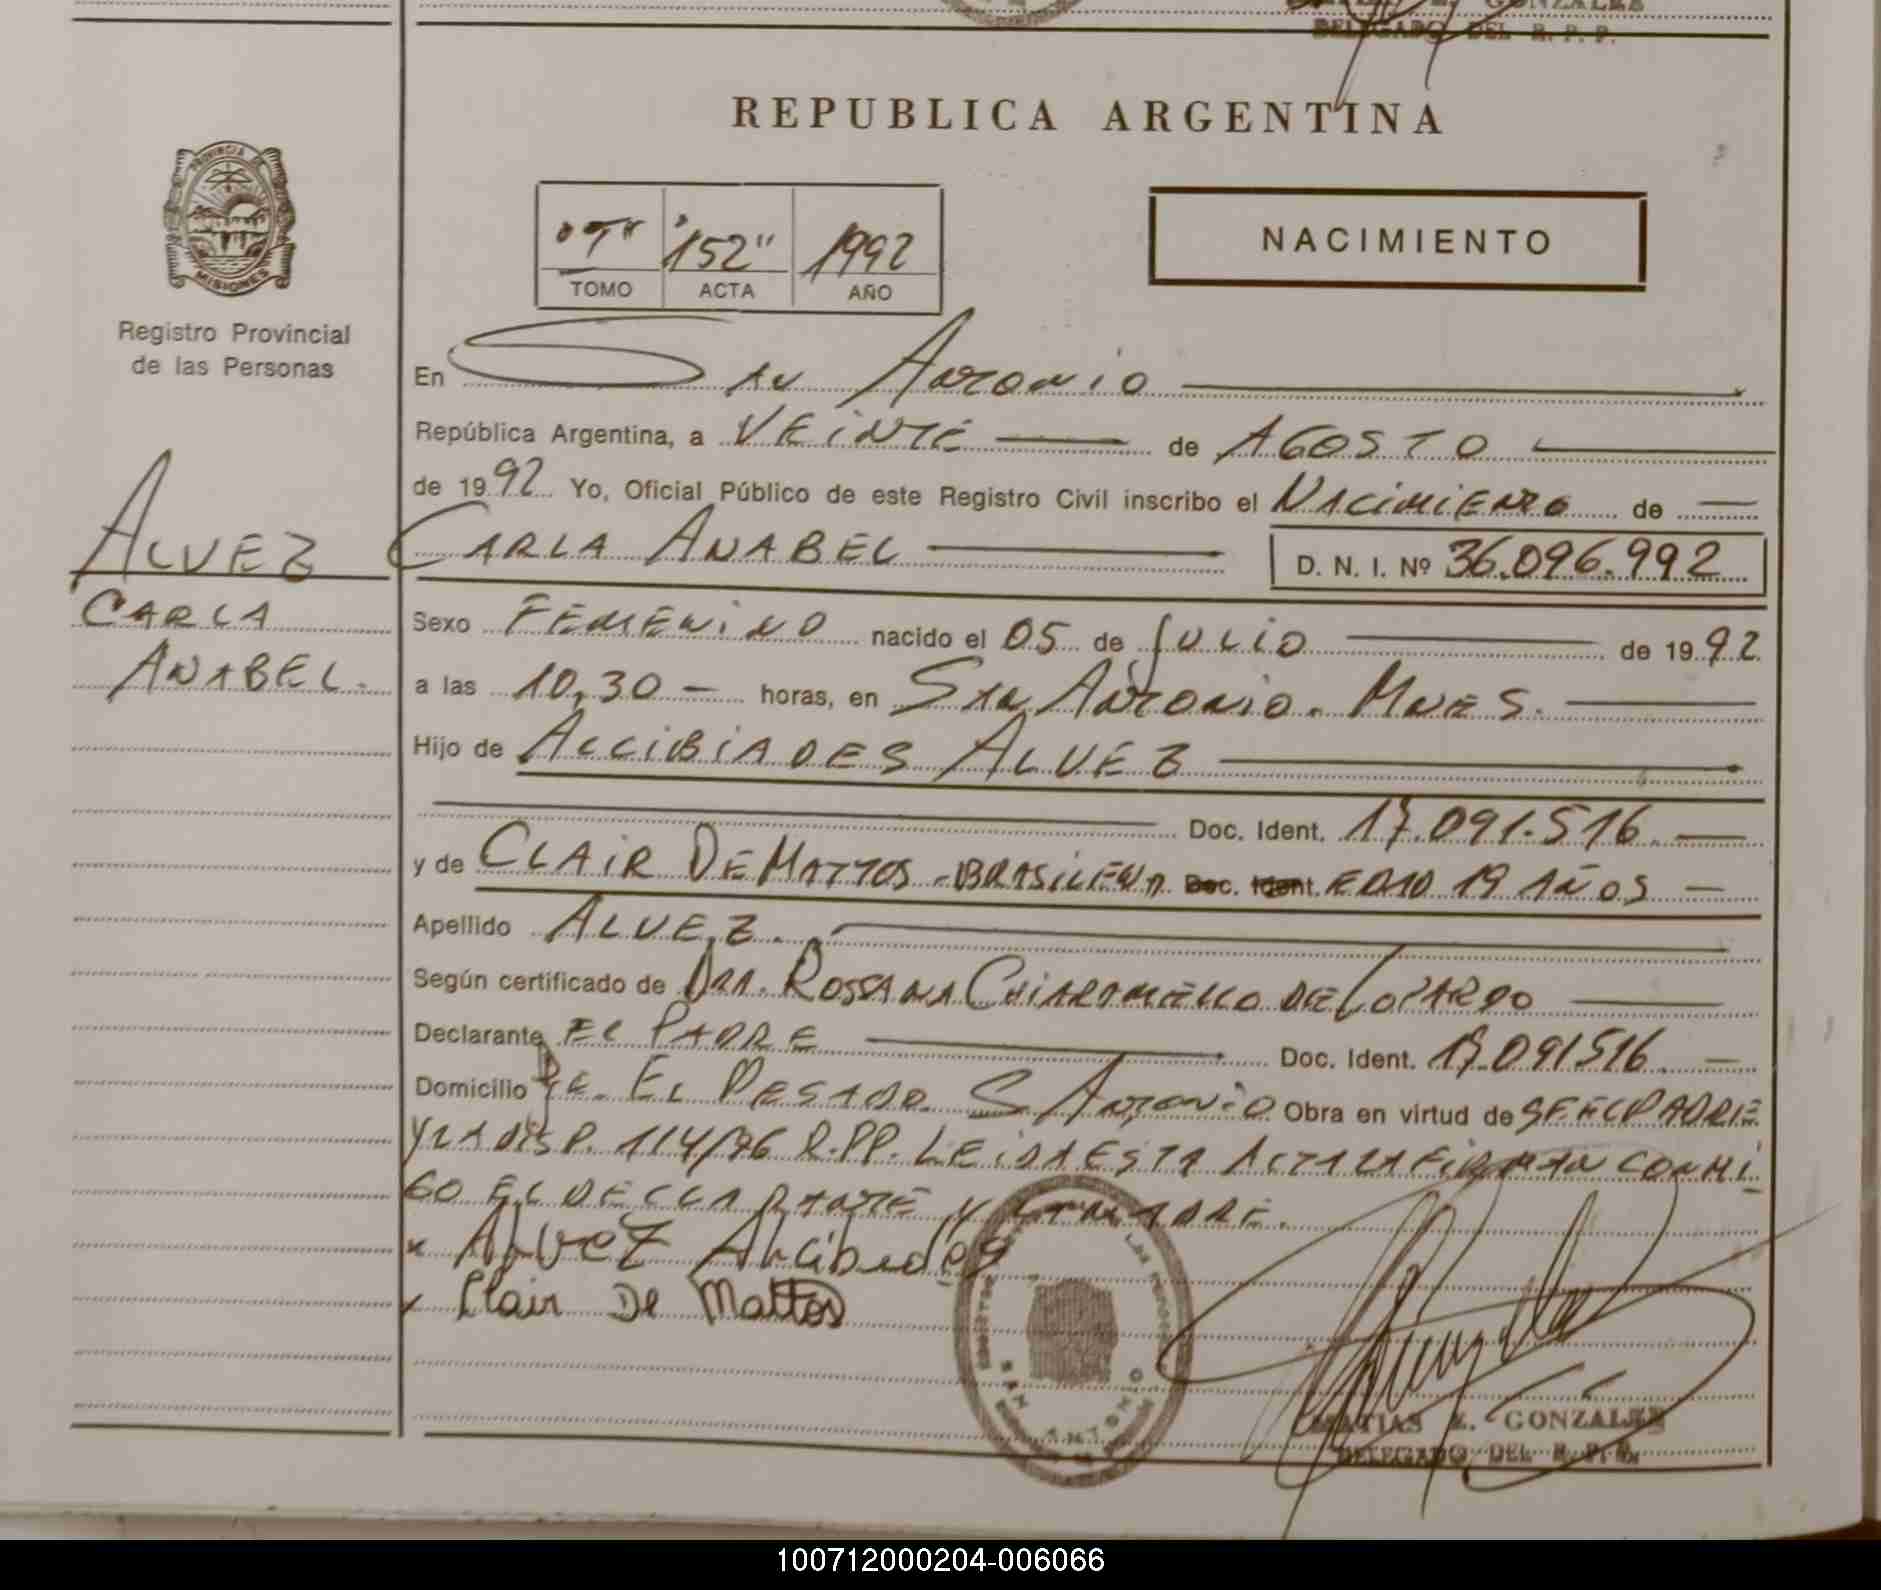 GONZALEZ
DELEGADO DEL R. P. P.
REPUBLICA ARGENTINA
PROVINCIA DE
MISIONES
Registro Provincial
de las Personas
"T" "152" 1992
TOMO ACTA AÑO
NACIMIENTO
En San Antonio
República Argentina, a VEiNTE de AGOSTO
de 1992 Yo, Oficial Público de este Registro Civil inscribo el NACiMiENTO de
ALVEZ
CARLA
ANABEL.
CARLA ANABEL D. N. I. Nº 36.096.992
Sexo FEMENiNO nacido el 05 de JULiO de 1992
a las 10,30 horas, en SAN ANTONiO. MNES.
Hijo de ALCiBiADES ALVEZ
Doc. Ident. 17.091.516.
y de CLAiR DE MATTOS - BRASiLEÑA Doc. Ident. EDAD 19 AÑOS
Apellido ALVEZ.
Según certificado de DRA. ROSSANA CHiAROMELLO DE LOPARDO
Declarante EL PADRE Doc. Ident. 17.091516.
Domicilio EL PESADO S ANTONiO Obra en virtud de SER EL PADRE
Y LA DISP. 114/76 R.PP. LEiDA ESTA ACTA LA FiRMAN CONMi
GO EL DECLARANTE Y LA MADRE.
x Alvez Alcibiades
x Clair De Mattos
SAN ANTONIO
MATIAS E. GONZALEZ
DELEGADO DEL R. P. P.
100712000204-006066